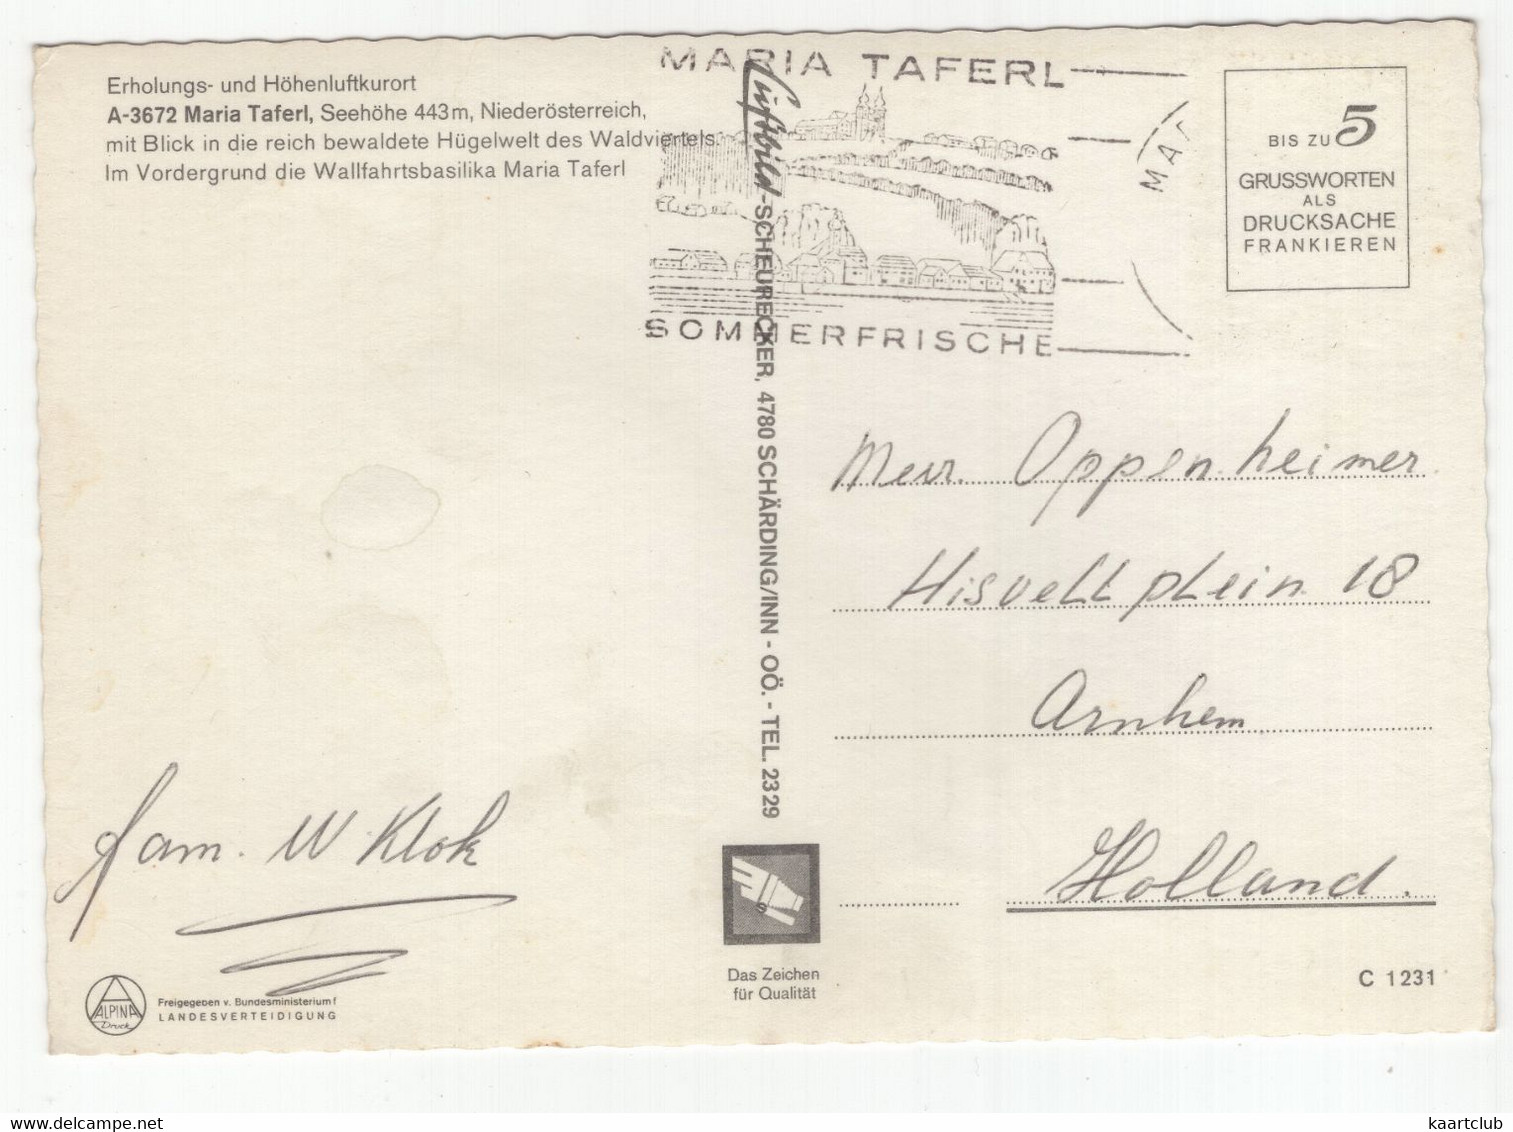 Erholungs- und Höhenluftkurort
A-3672 Maria Taferl, Seehöhe 443m, Niederösterreich,
mit Blick in die reich bewaldete Hügelwelt des Waldviertels.
Im Vordergrund die Wallfahrtsbasilika Maria Taferl
MARIA TAFERL
SOMMERFRISCHE
BIS ZU 5
GRUSSWORTEN
ALS
DRUCKSACHE
FRANKIEREN
Luftbild-SCHEURECKER, 4780 SCHÄRDING/INN - OÖ. - TEL. 2329
Mevr. Oppenheimer
Hisveltplein 18
Arnhem
Holland.
fam. W Klok
ALPINA
Druck
Freigegeben v. Bundesministerium f
LANDESVERTEIDIGUNG
Das Zeichen
für Qualität
C 1231
kaartclub